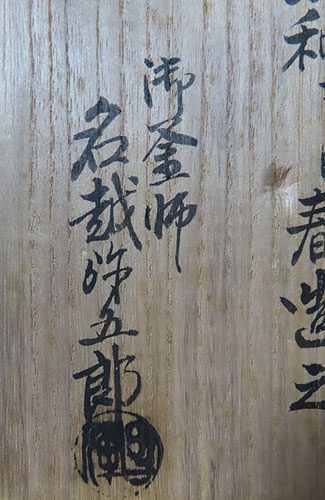 和 春造之
御釜師
名越弥五郎